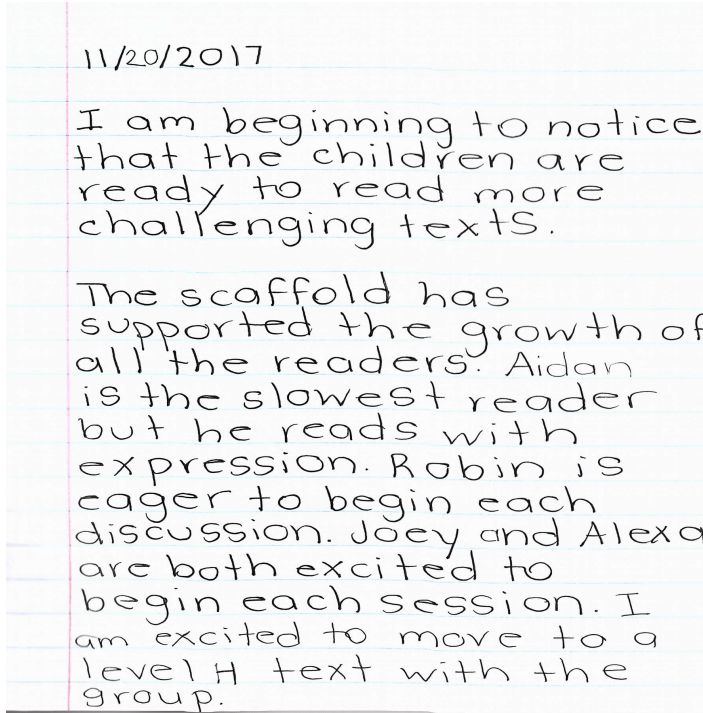 11/20/2017
I am beginning to notice
that the children are
ready to read more
challenging texts.
The scaffold has
supported the growth of
all the readers. Aidan
is the slowest reader
but he reads with
expression. Robin is
eager to begin each
discussion. Joey and Alexa
are both excited to
begin each session. I
am excited to move to a
level H text with the
group.